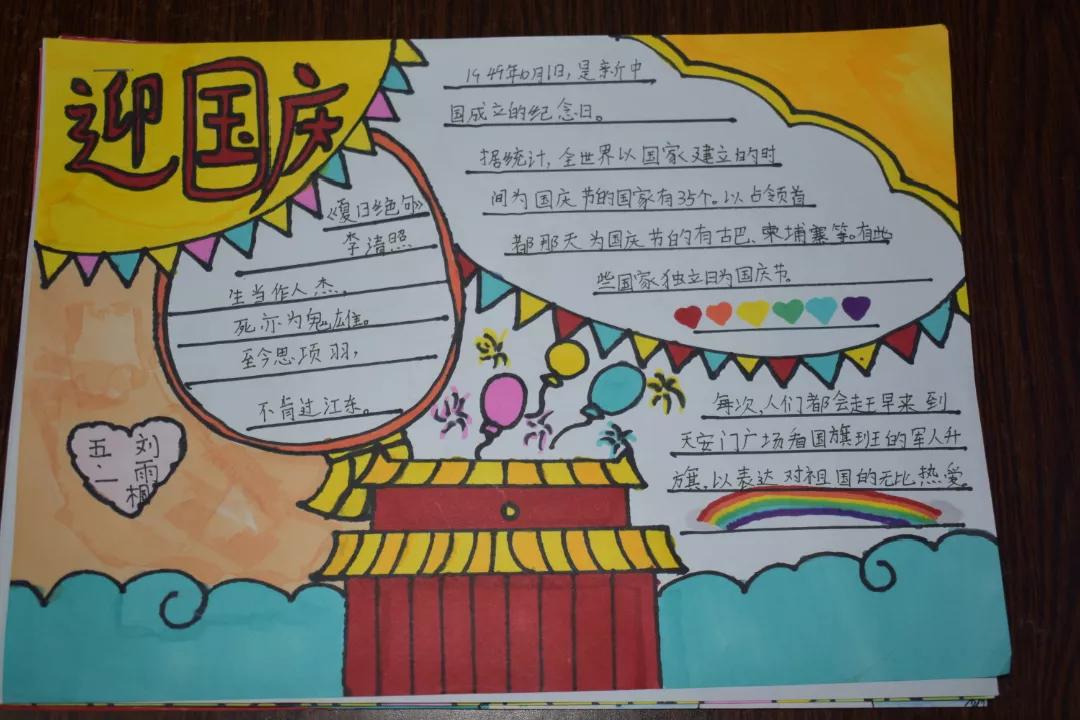 迎国庆
《夏日绝句》
李清照
生当作人杰。
死亦为鬼雄。
至今思项羽，
不肯过江东。
1949年10月1日，是新中
国成立的纪念日。
据统计，全世界以国家建立的时
间为国庆节的国家有35个。以占领首
都那天为国庆节的有古巴、柬埔寨等。有些
些国家独立日为国庆节。
每次，人们都会赶早来到
天安门广场看国旗班的军人升
旗，以表达对祖国的无比热爱。
五·一
刘雨桐